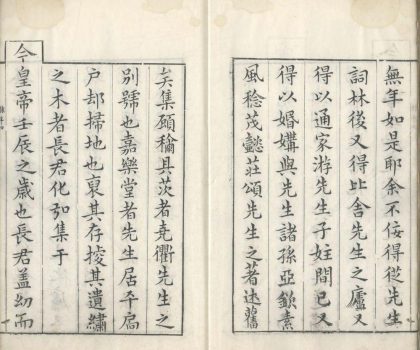 無年如是耶余不佞得從先生
詞林後又得比舍先生之廬又
得以通家游先生子姪間已又
得以婚媾與先生諸孫亞鎖素
風稔茂懿莊頌先生之著述舊
矣集顏樀具茨者堯衢先生之
別號也嘉樂堂者先生居卒扃
户却掃地也裒其存掞其遺繡
之木者長君化弘集于
今皇帝壬辰之歲也長君盖㓜而